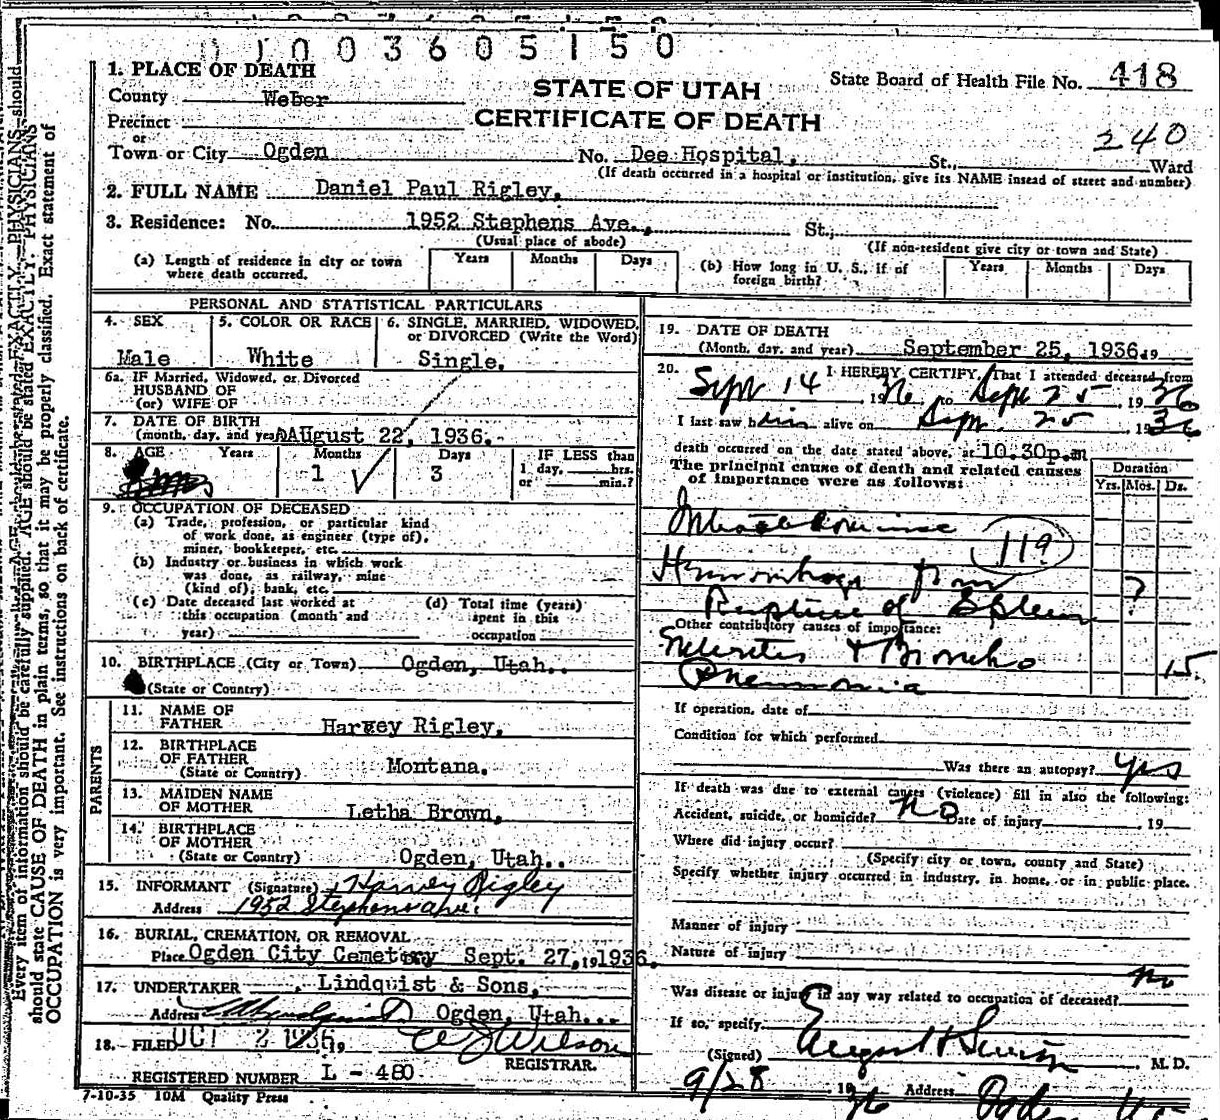 01003605150
1. PLACE OF DEATH
STATE OF UTAH
CERTIFICATE OF DEATH
State Board of Health File No. 418
County Weber
Precinct
or
Town or City Ogden No. Dee Hospital, St., Ward
240
(If death occurred in a hospital or institution, give its NAME insead of street and number)
2. FULL NAME Daniel Paul Rigley,
3. Residence: No. 1952 Stephens Ave., St.,
(Usual place of abode) (If non-resident give city or town and State)
(a) Length of residence in city or town where death occurred. Years Months Days
(b) How long in U. S., if of foreign birth? Years Months Days
PERSONAL AND STATISTICAL PARTICULARS
4. SEX 5. COLOR OR RACE 6. SINGLE, MARRIED, WIDOWED, or DIVORCED (Write the Word)
Male White Single.
6a. IF Married, Widowed, or Divorced
HUSBAND OF
(or) WIFE OF
7. DATE OF BIRTH
(month, day, and year) August 22, 1936.
8. AGE Years Months Days IF LESS than
1 3
1 day, hrs.
or min.?
9. OCCUPATION OF DECEASED
(a) Trade, profession, or particular kind
of work done, as engineer (type of),
miner, bookkeeper, etc.
(b) Industry or business in which work
was done, as railway, mine
(kind of), bank, etc.
(c) Date deceased last worked at
this occupation (month and
year)
(d) Total time (years)
spent in this
occupation
10. BIRTHPLACE (City or Town) Ogden, Utah..
(State or Country)
PARENTS
11. NAME OF
FATHER Harvey Rigley,
12. BIRTHPLACE
OF FATHER
(State or Country) Montana.
13. MAIDEN NAME
OF MOTHER Letha Brown,
14. BIRTHPLACE
OF MOTHER
(State or Country) Ogden, Utah..
15. INFORMANT (Signature) Harvey Rigley
Address 1952 Stephens ave.
16. BURIAL, CREMATION, OR REMOVAL
Place Ogden City Cemetery Sept. 27, 19 1936.
17. UNDERTAKER Lindquist & Sons,
Address Ogden, Utah...
18. FILED OCT 2 1936,
Wilson
REGISTRAR.
REGISTERED NUMBER L - 480
7-10-35 10M Quality Press
19. DATE OF DEATH
(Month, day, and year) September 25, 1936. 19
20. I HEREBY CERTIFY, That I attended deceased from
Sept 14 1936 to Sept 25 1936
I last saw him alive on Sept. 25, 1936
death occurred on the date stated above, at 10.30p.m
The principal cause of death and related causes
of importance were as follows:
Duration
Yrs. Mos. Ds.
119
Hemorrhage from ?
Rupture of Spleen
Other contributory causes of importance:
Enteritis + Broncho 15
Pneumonia
If operation, date of
Condition for which performed
Was there an autopsy? yes
If death was due to external causes (violence) fill in also the following:
Accident, suicide, or homicide? no Date of injury , 19
Where did injury occur?
(Specify city or town, county and State)
Specify whether injury occurred in industry, in home, or in public place.
Manner of injury
Nature of injury
Was disease or injury in any way related to occupation of deceased? no
If so, specify
(Signed) M. D.
9/28 , 1936 Address Ogden
Every item of information should be carefully supplied. AGE should be stated EXACTLY. PHYSICIANS
should state CAUSE OF DEATH in plain terms, so that it may be properly classified. Exact statement of
OCCUPATION is very important. See instructions on back of certificate.